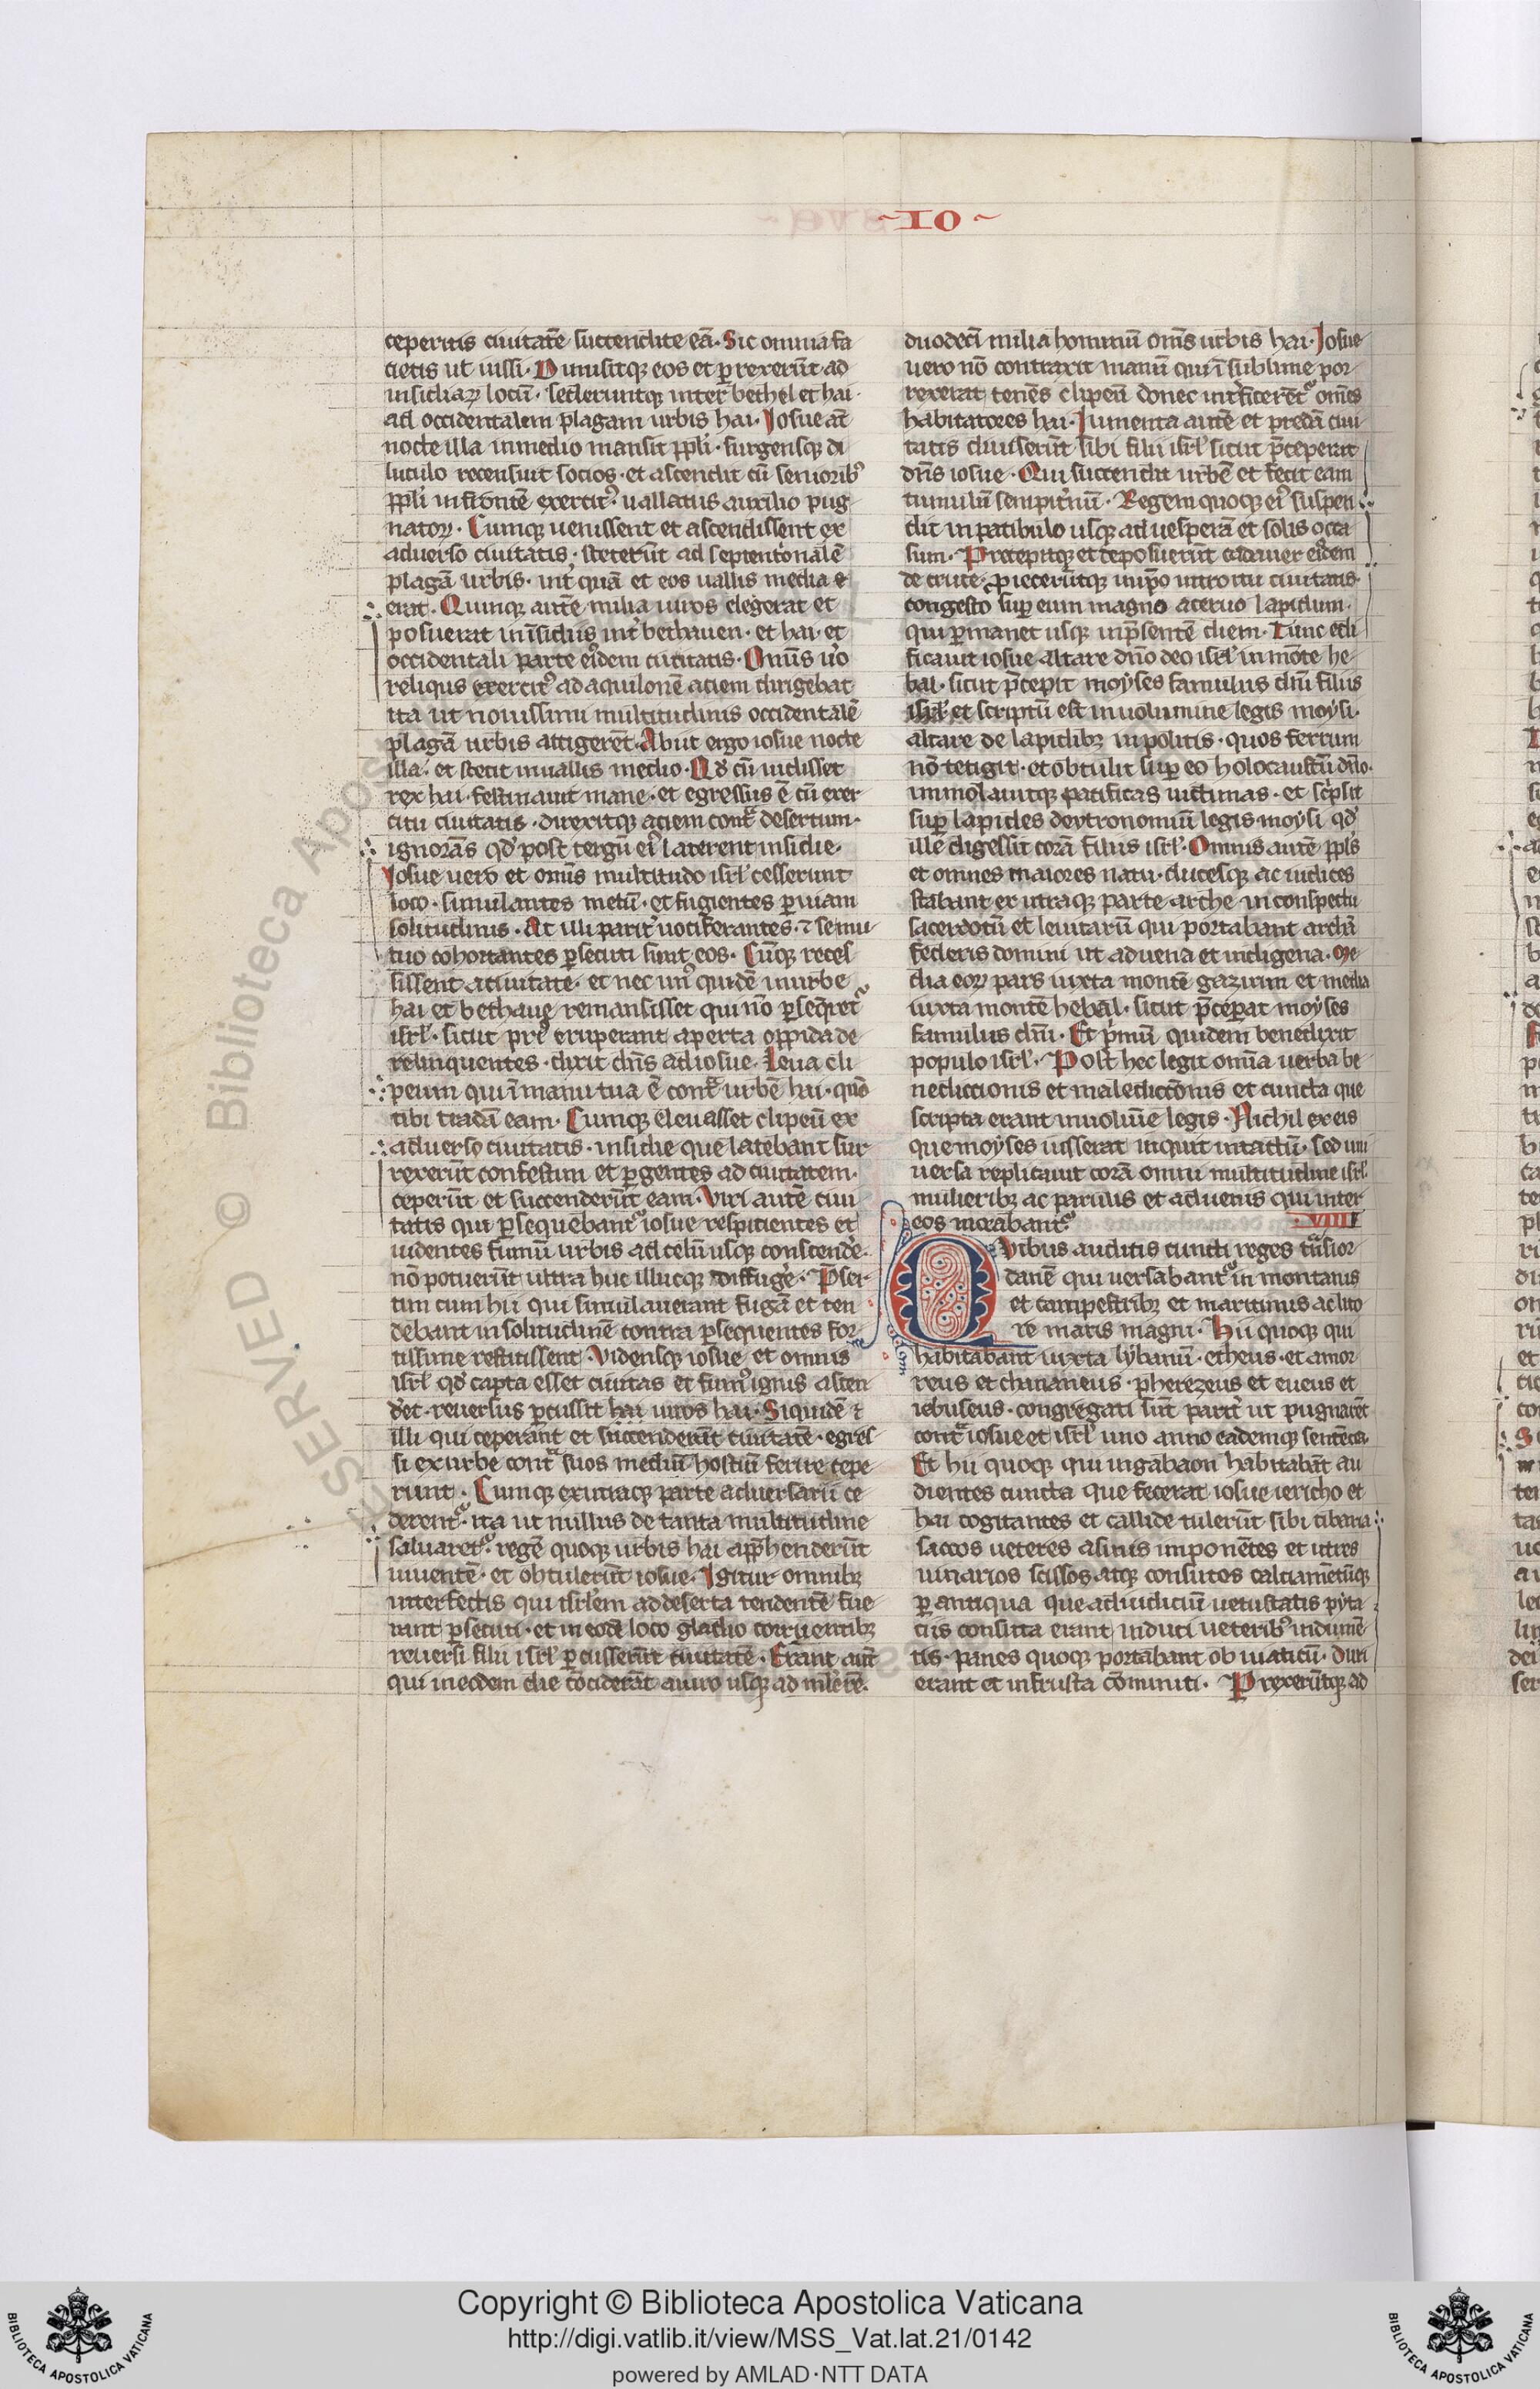 ~ IO ~
ceperitis ciuitatē succendite eā. Sic omnia fa
cietis ut iussi. Dimisitqꝫ eos et ꝑrexerūt ad
insidiaꝝ locū. sederuntqꝫ inter bethel et hai
ad occidentalem plagam urbis hai. Iosue aūt
nocte illa in medio mansit ppl̓i. surgensqꝫ di
luculo recensuit socios. et ascendit cū seniorib᷒
ppl̓i in frontē exercit᷒. uallatus auxilio pug
natoꝝ. Cumqꝫ uenissent et ascendissent ex
aduerso ciuitatis, steterūt ad septentrionalē
plagā urbis. int̓ quā et eos uallis media
erat. Quinqꝫ autē milia uiros elegerat et
posuerat in īsidiis int̓ bethauen. et hai. et
occidentali parte eiꝰdem ciuitatis. Omnis u̓o
reliquus exercit᷒ ad aquilonē aciem dirigebat
ita ut nouissimi multitudinis occidentalē
plagā urbis attigerēt. Abiit ergo iosue nocte
illa. et stetit in uallis medio. Qd̓ cū uidisset
rex hai. festinauit mane. et egressus ē cū exer
citu ciuitatis. direxitqꝫ aciem contͣ desertum.
ignorās qd̓ post tergū ei᷒ laterent insidie.
Iosue uero et omis multitudo isrl̓ cesserunt
loco. simulantes metū. et fugientes ꝑ uiam
solitudinis. At illi parit̓ uociferantes. ⁊ se mu
tuo cohortantes ꝑsecuti sunt eos. Cūqꝫ recef
sissent a ciuitate. et nec un᷒ quidē in urbe
hai et bethaue remansisset qui nō ꝑseq̄ret᷑
isrl̓. sicut pri᷒ eruperant aperta oppida de
relinquentes. dixit dn̄s ad iosue. Leua cli
peum qui ī manu tua ē contͣ urbē hai. qm̄
tibi tradā eam. Cumqꝫ eleuasset clipeū ex
aduerso ciuitatis. insidie que latebant sur
rexerūt confestim et ꝑgentes ad ciuitatem.
ceperūt et succenderūt eam. Viri autē ciui
tatis qui ꝑsequebant᷑ iosue respicientes et
uidentes fumū urbis ad celū usqꝫ conscende᷑.
nō potuerūt ultra huc illucqꝫ diffuge᷑. P̄ser
tim cum hii qui simulauerant fugā et ten
debant in solitudinē contra ꝑsequentes for
tissime restitissent. Vidensqꝫ iosue et omnis
isrl̓ qd̓ capta esset ciuitas et fum᷒ ignis ascen
det. reuersus ꝑcussit hai uiros hai. Siquidē ⁊
illi qui ceperant et succenderūt ciuitatē. egres
si ex urbe contͣ suos mediū hostiū ferire cepe
runt. Cumqꝫ ex utraqꝫ parte aduersarii ce
derent᷑. ita ut nullus de tanta multitudine
saluaret᷑. regē quoqꝫ urbis hai app̄henderūt
uiuentē. et obtulerūt iosue. Igitur omnibꝫ
interfectis qui isrl̓em ad deserta tendentē fue
rant ꝑsecuti. et in eodē loco gladio corruentibꝫ
reuersi filii isrl̓ ꝑcusserūt ciuitatē. Erant aūt
qui in eodem die cōciderāt a uiro usqꝫ ad mulierē.
duodecī milia hominū om̄s urbis hai. Iosue
uero nō contraxit manū qui ī sublime por
rexerat tenēs clipeū donec int̓ficerēt᷑ om̄es
habitatores hai. Iumenta autē et predā ciui
tatis diuiserūt sibi filii isrl̓ sicut p̄ceperat
dn̄s iosue. Qui succendit urbē et fecit eam
tumulū sempit̓nū. Regem quoqꝫ ei᷒ suspen
dit in patibulo usqꝫ ad uesperā et solis occa
sum. Precepitqꝫ et deposuerūt cadauer ei᷒dem
de cruce. ꝓieceruntqꝫ in ip̄o introitu ciuitatis.
congesto suꝑ eum magno aceruo lapidum.
qui ꝑmanet usqꝫ in p̄sentē diem. Tunc edi
ficauit iosue altare dn̄o deo isrl̓ in mōte he
bal. sicut p̄cepit moyses famulus dn̄i filiis
isrl̓ et scriptū est in uolumine legis moysi.
altare de lapidibꝫ inpolitis. quos ferrum
nō tetigit. et obtulit suꝑ eo holocaustū dn̄o.
immolauitqꝫ pacificas uictimas. et sc̓psit
suꝑ lapides deutronomiū legis moysi qd̓
ille digessit corā filiis isrl̓. Omnis autē ppl̓s
et omnes maiores natu. ducesqꝫ ac iudices
stabant ex utraqꝫ parte arche in conspectu
sacerdotū et leuitarū qui portabant archā
federis domini ut aduena et indigena. Me
dia eoꝝ pars iuxta montē gazirim et media
iuxta montē hebal. sicut p̄ceperat moyses
famulus dn̄i. Et p̓mū quidem benedixit
populo isrl̓. Post hec legit om̄ia uerba be
nedictionis et maledictōnis et cuncta que
scripta erant in uolūīe legis. Nichil ex eis
que moyses iusserat inquit intactū. sed uni
uersa replicauit corā omni multitudine isrl̓
mulieribꝫ ac paruulis et aduenis qui inter
eos morabant᷑. VIIII
Quibus auditis cuncti reges tͣnsior
danē qui uersabant᷑ in montanis
et campestribꝫ et maritimis ac lito
re maris magni. Hii quoqꝫ qui
habitabant iuxta lybanū. etheus. et amor
reus et chananeus. pherezeus et eueus et
iebuseus. congregati sūt parit̓ ut pugnarēt
contͣ iosue et isrl̓ uno animo eademqꝫ sentēcia.
Et hii quoqꝫ qui in gabaon habitabāt au
dientes cuncta que fecerat iosue iericho et
hai cogitantes et callide tulerūt sibi cibaria
saccos ueteres asinis imponētes et utres
uinarios scissos. atqꝫ consutos calciamētaqꝫ
ꝑantiqua que ad iudiciū uetustatis pyta
ciis consuta erant induti ueterib᷒ indumē
tis. panes quoqꝫ portabant ob uiaticū. duri
erant et in frusta cōminuti. Prexerūtqꝫ ad
© Biblioteca Apos
ESERVED
Copyright © Biblioteca Apostolica Vaticana
http://digi.vatlib.it/view/MSS_Vat.lat.21/0142
powered by AMLAD·NTT DATA
BIBLIOTECA APOSTOLICA VATICANA
BIBLIOTECA APOSTOLICA VATICANA